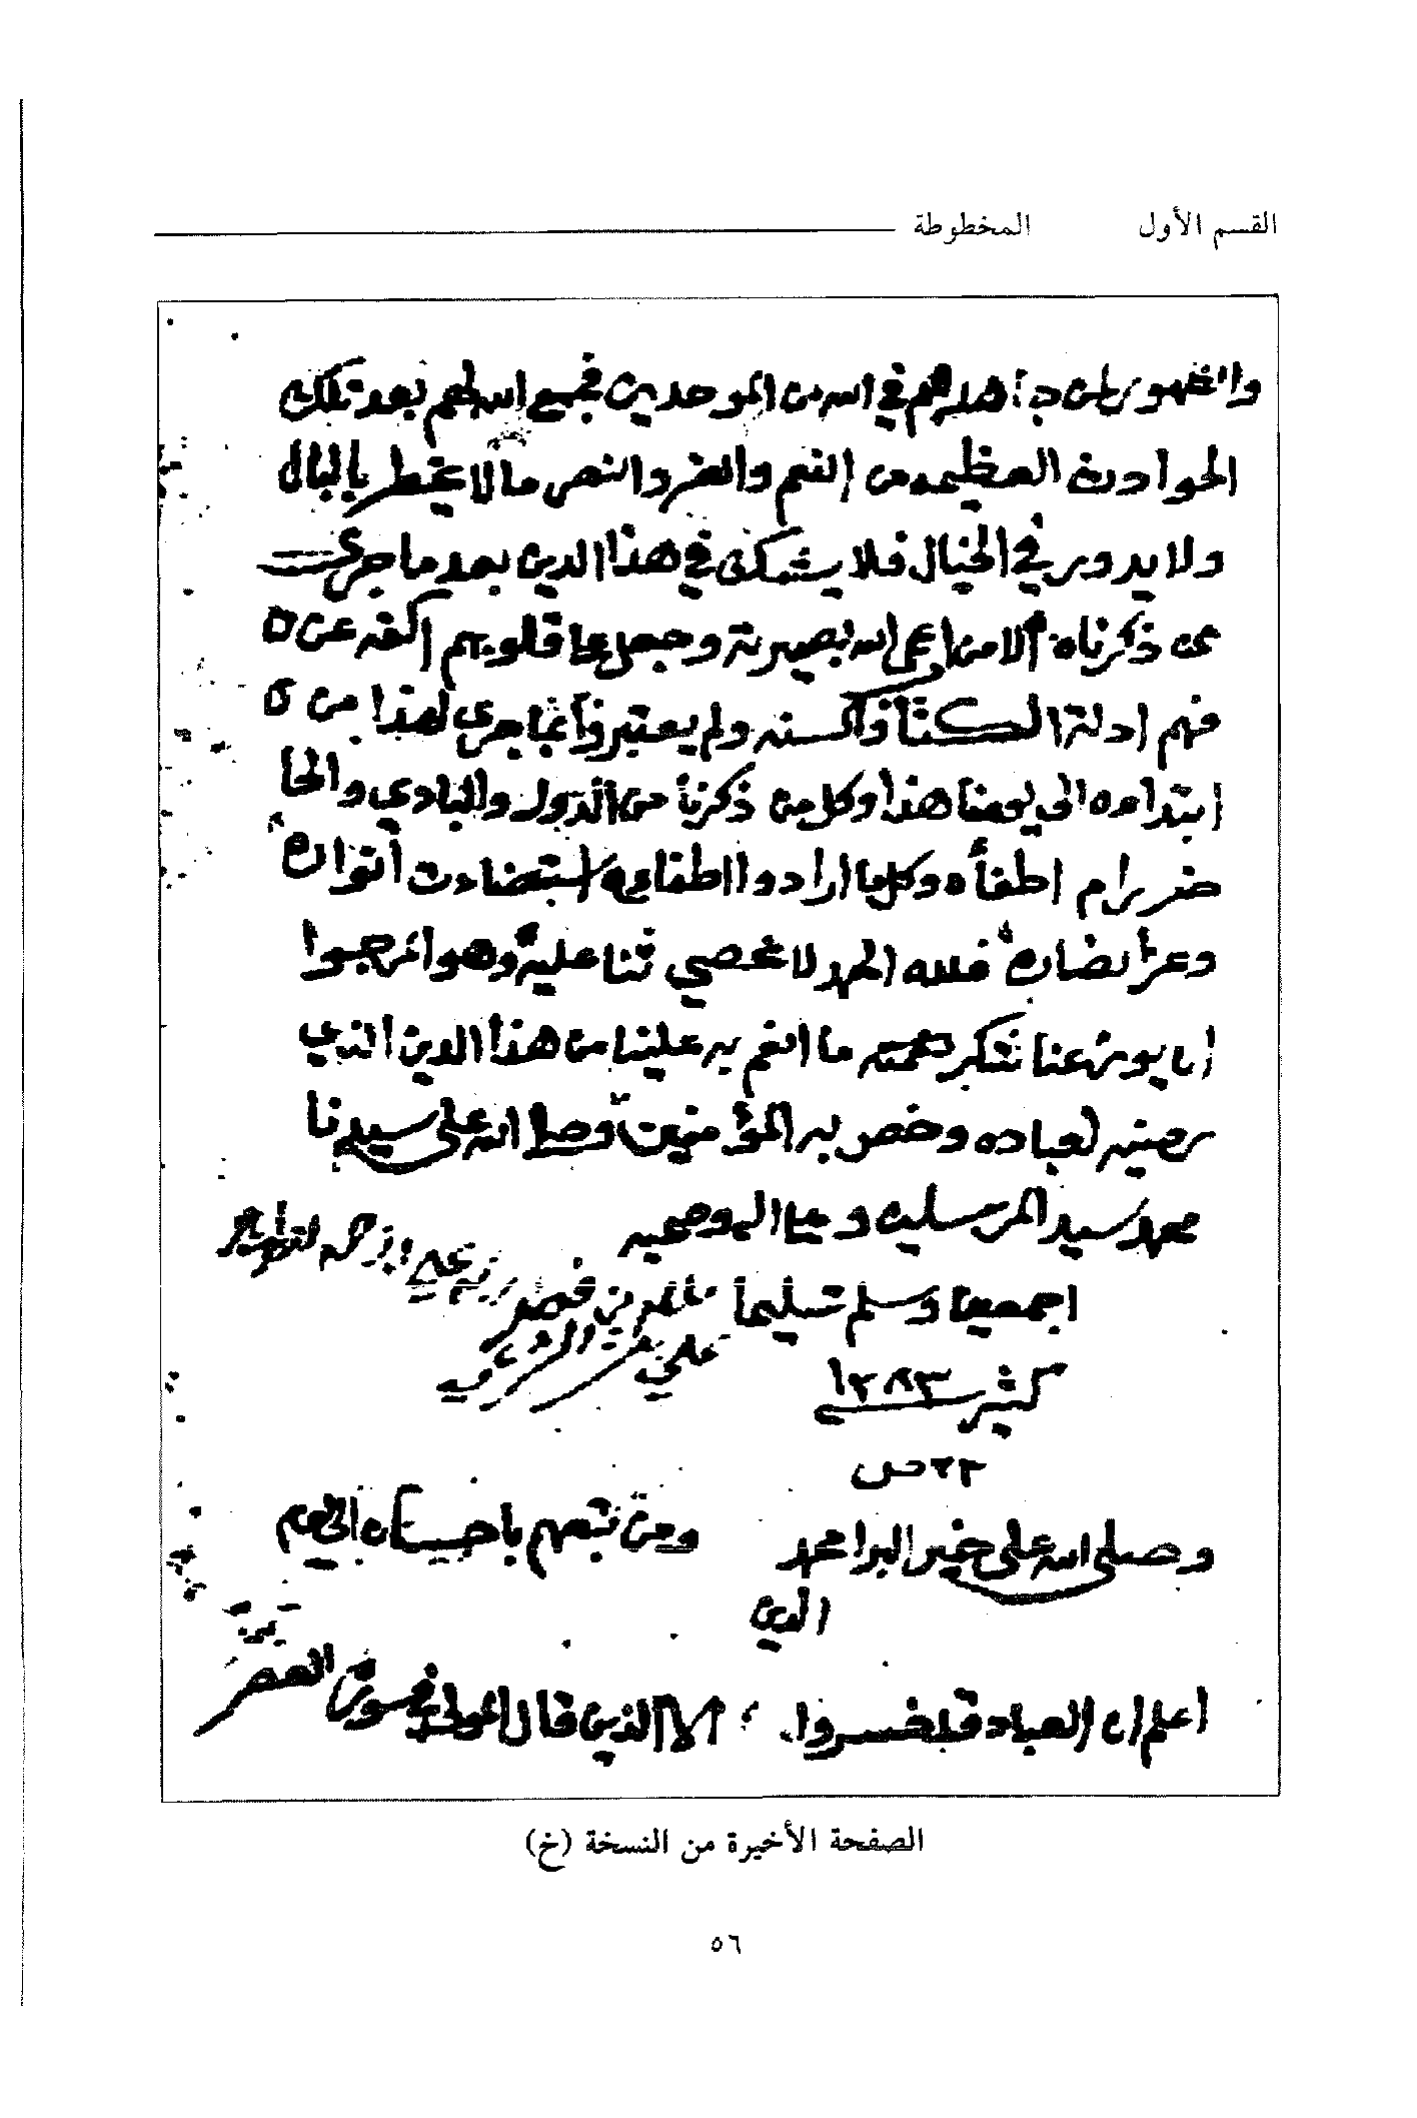 القسم الأول المخطوطة
والظهور لمن جاهدهم في الله من الموحدين فجمع الله لهم بعد تلك
الحوادث العظيمه من النعم والعز والنصر ما لا يخطر بالبال
ولا يدور في الخيال فلا يشك في هذا الدين بعد ما جرى
من ذكرناه الا من اعمى الله بصيرته وجعل على قلوبهم اكنه عن
فهم ادلة الكتاب والسنه ولم يعتبروا بما جرى لهذا من
ابتداءه الى يومنا هذا وكل من ذكرنا من الدول والبادي والحا
ضر رام اطفأه وكلما ارادوا اطفاءه استضاءت انواره
وعز انصاره فلله الحمد لا نحصي ثنا عليه وهو المرجوا
ان يوزعنا شكر نعمته ما انعم به علينا من هذا الدين الذي
رضيه لعباده وخص به المؤمنين وصلى الله على سيدنا
محمد سيد المرسلين وعلى اله وصحبه
اجمعين وسلم تسليما
كثير ١٢٨٣
٢٣ ص
وصلى الله على خير البرا محمد ومن تبعهم باحسان الى يوم
الدين
اعلم ان العباد قد خسروا الا الذين قال المولى في سورة العصر
الصفحة الأخيرة من النسخة (خ)
٥٦